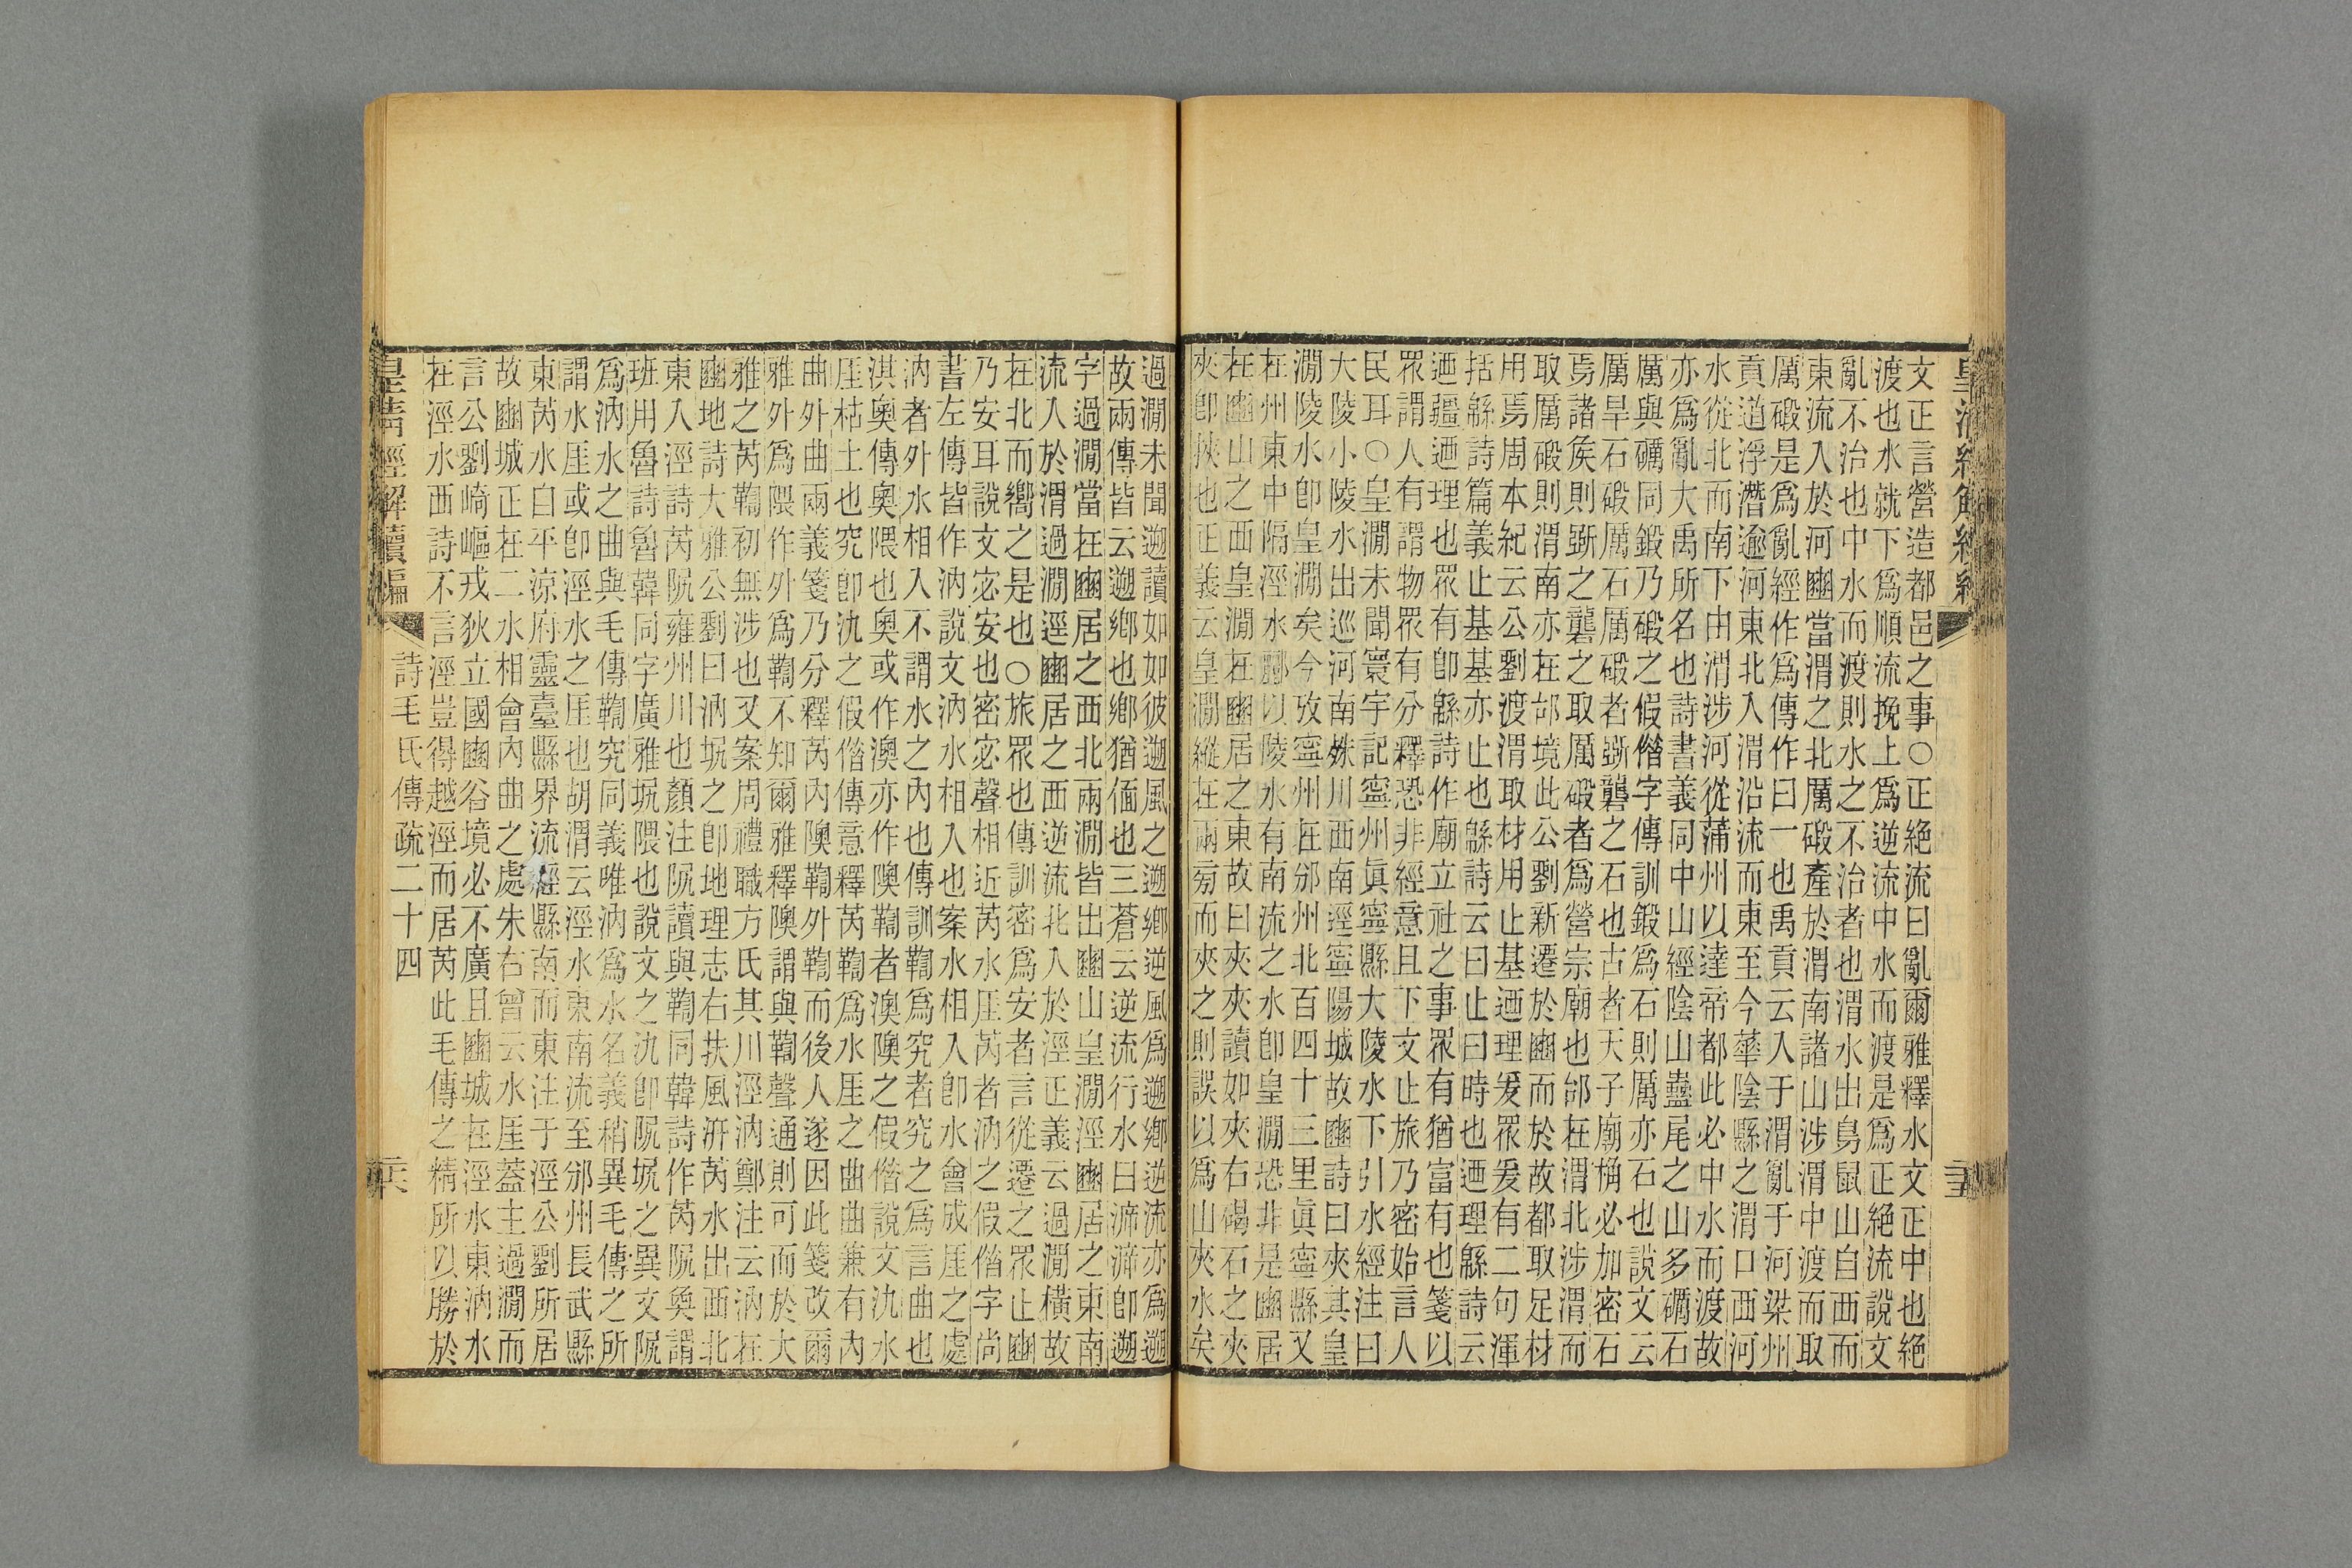 皇清經解續編
文正言營造都邑之事○正絕流曰亂爾雅釋水文正中也絕
渡也水就下爲順流挽上爲逆流中水而渡是爲正絕流說文
亂不治也中水而渡則水之不治者也渭水出鳥鼠山自西而
東流入於河豳當渭之北厲碫產於渭南諸山涉渭中渡而取
厲碫是爲亂經作爲傳作曰一也禹貢云入于渭亂于河梁州
貢道浮潛逾河東北入渭沿流而東至今華陰縣之渭口西河
水從北而南下由渭涉河從蒲州以達帝都此必中水而渡故
亦爲亂大禹所名也詩書義同中山經陰山蠱尾之山多礪石
厲與礪同鍛乃碫之假偕字傳訓鍛爲石則厲亦石也說文云
厲旱石碫厲石厲碫者斲礱之石也古者天子廟桷必加密石
焉諸矦則斲之礱之取厲碫者爲營宗廟也邰在渭北涉渭而
取厲碫則渭南亦在邰境此公劉新遷於豳而於故都取足材
用焉周本紀云公劉渡渭取材用止基迺理爰眾爰有二句渾
括緜詩篇義止基基亦止也緜詩云曰止曰時也迺理緜詩云
迺疆迺理也眾有卽緜詩作廟立社之事眾有猶富有也箋以
眾謂人有謂物眾有分釋恐非經意且下文止旅乃密始言人
民耳○皇澗未聞寰宇記寧州眞寧縣大陵水下引水經注曰
大陵小陵水出巡河南殊川西南逕寧陽城故豳詩曰夾其皇
澗陵水卽皇澗矣今攷寧州在邠州北百四十三里眞寧縣又
在州東中隔涇水酈以陵水有南流之水卽皇澗恐非是豳居
在豳山之西皇澗在豳居之東故曰夾夾讀如夾右碣石之夾
夾卽挾也正義云皇澗縱在兩旁而夾之則誤以爲山夾水矣
過澗未聞遡讀如如彼遡風之遡鄉逆風爲遡鄉逆流亦爲遡
故兩傳皆云遡鄉也鄉猶偭也三蒼云逆流行水曰㴑㴑卽遡
字過澗當在豳居之西北兩澗皆出豳山皇澗涇豳居之東南
流入於渭過澗逕豳居之西逆流北入於涇正義云過澗橫故
在北而嚮之是也○旅眾也傳訓密爲安者言從遷之眾止豳
乃安耳說文宓安也密宓聲相近芮水厓芮者汭之假偕字尚
書左傳皆作汭說文汭水相入也案水相入卽水會成厓之處
汭者外水相入不謂水之內也傳訓鞫爲究者究之爲言曲也
淇奧傳奧隈也奧或作澳亦作隩鞫者澳隩之假偕說文氿水
厓枯土也究卽氿之假偕傳意釋芮鞫爲水厓之曲曲兼有內
曲外曲兩義箋乃分釋芮內隩鞫外鞫而後人遂因此箋改爾
雅外爲隈作外爲鞫不知爾雅釋隩謂與鞫聲通則可而於大
雅之芮鞫初無涉也又案周禮職方氏其川涇汭鄭注云汭在
豳地詩大雅公劉曰汭坭之卽地理志右扶風汧芮水出西北
東入涇詩芮阮雍州川也顏注阮讀與鞫同韓詩作芮阮奐謂
班用魯詩魯韓同字廣雅坭隈也說文之氿卽阮坭之異文阮
爲汭水之曲與毛傳鞫究同義唯汭爲水名義稍異毛傳之所
謂水厓或卽涇水之厓也胡渭云涇水東南流至邠州長武縣
東芮水自平涼府靈臺縣界流經縣南而東注于涇公劉所居
故豳城正在二水相會內曲之處朱右曾云水厓蓋主過澗而
言公劉崎嶇戎狄立國豳谷境必不廣且豳城在涇水東汭水
在涇水西詩不言涇豈得越涇而居芮此毛傳之精所以勝於
皇清經解續編
詩毛氏傳疏二十四